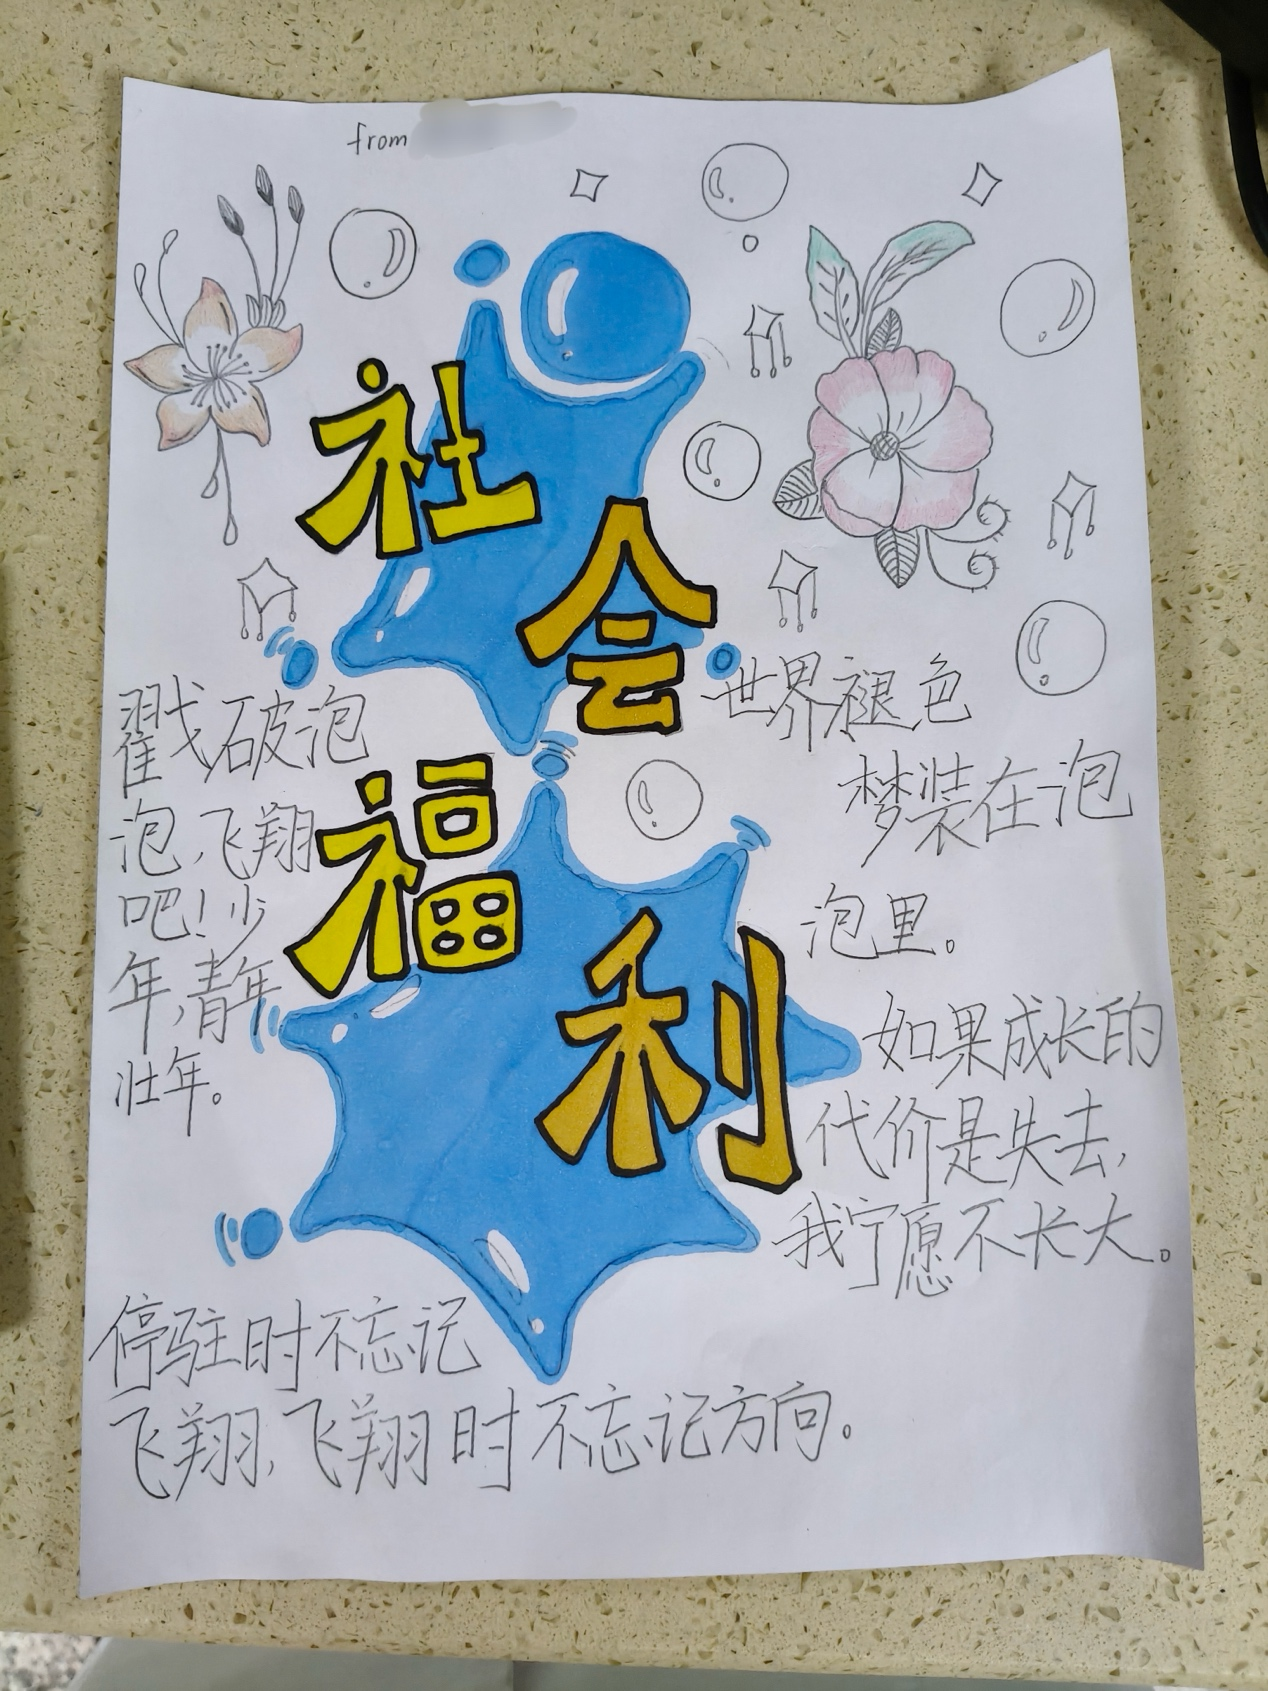 from
社
会
福
利
戳破泡
泡,飞翔
吧!少
年,青年
壮年。
世界褪色
梦装在泡
泡里。
如果成长的
代价是失去,
我宁愿不长大。
停驻时不忘记
飞翔,飞翔时不忘记方向。